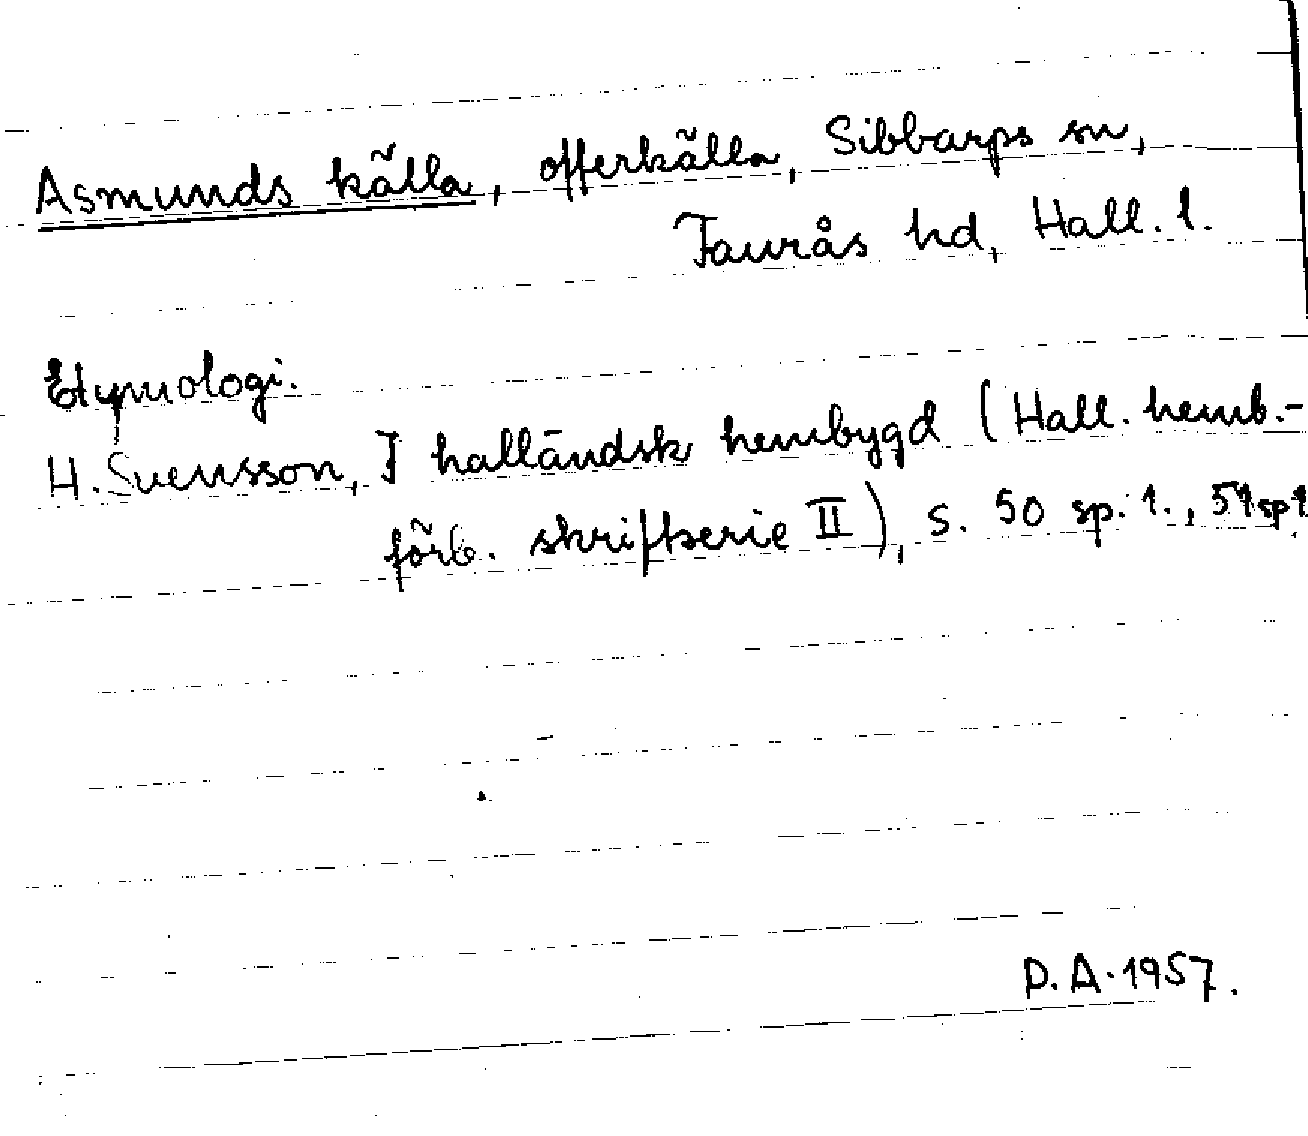 Asmunds källa, offerkälla, Sibbarps sn,
Faurås hd, Hall. l.
Etymologi.
H. Svensson, I halländsk hembygd (Hall. hemb.-
förb. skriftserie II), s. 50 sp. 1., 51 sp 1
D. A. 1957.